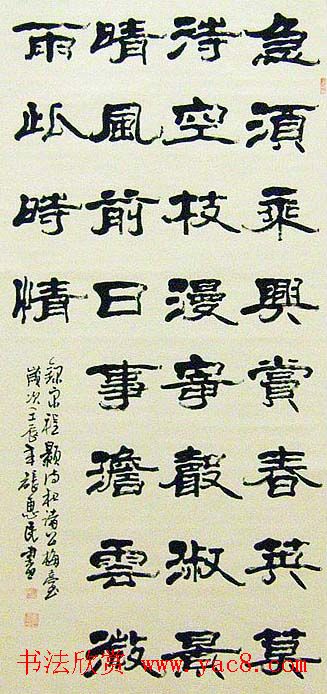 急須乘興賞春英莫
待空枝漫寄聲淑景
晴風前日事澹雲微
雨此時情
錄宋程顥詩和諸公梅臺
歲次壬辰年張惠民書
书法欣赏 www.yac8.com